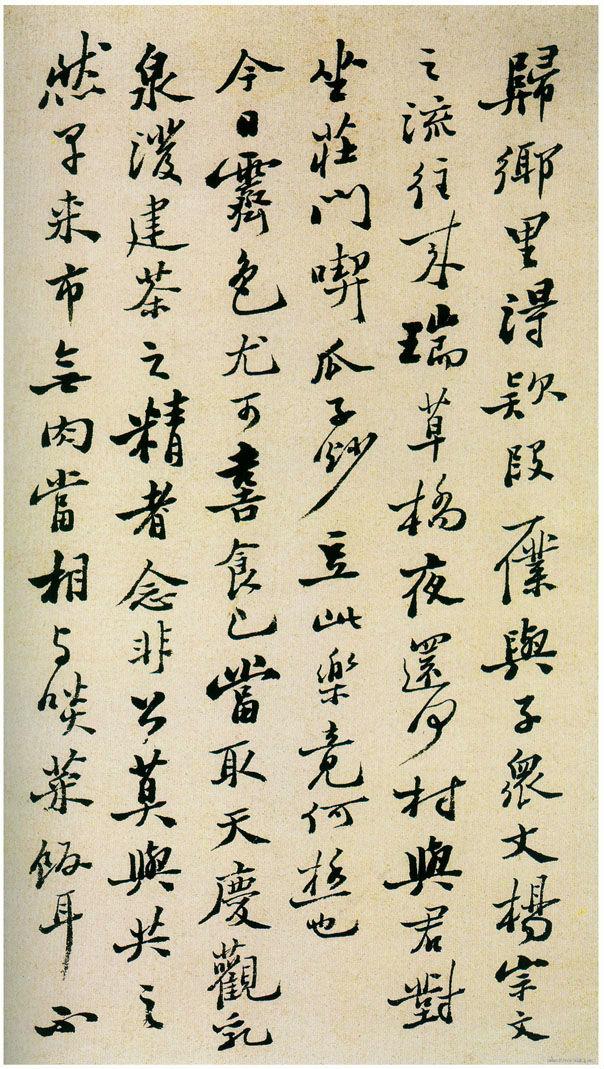 歸鄉里得欵段一僕與子眾丈楊宗文
之流往來瑞草橋夜還何村與君對
坐莊門喫瓜子炒豆此樂竟何極也
今日霽色尤可喜食已當取天慶觀乳
泉潑建茶之精者念非公莫與共之
然早來市無肉當相与啖菜飯耳不